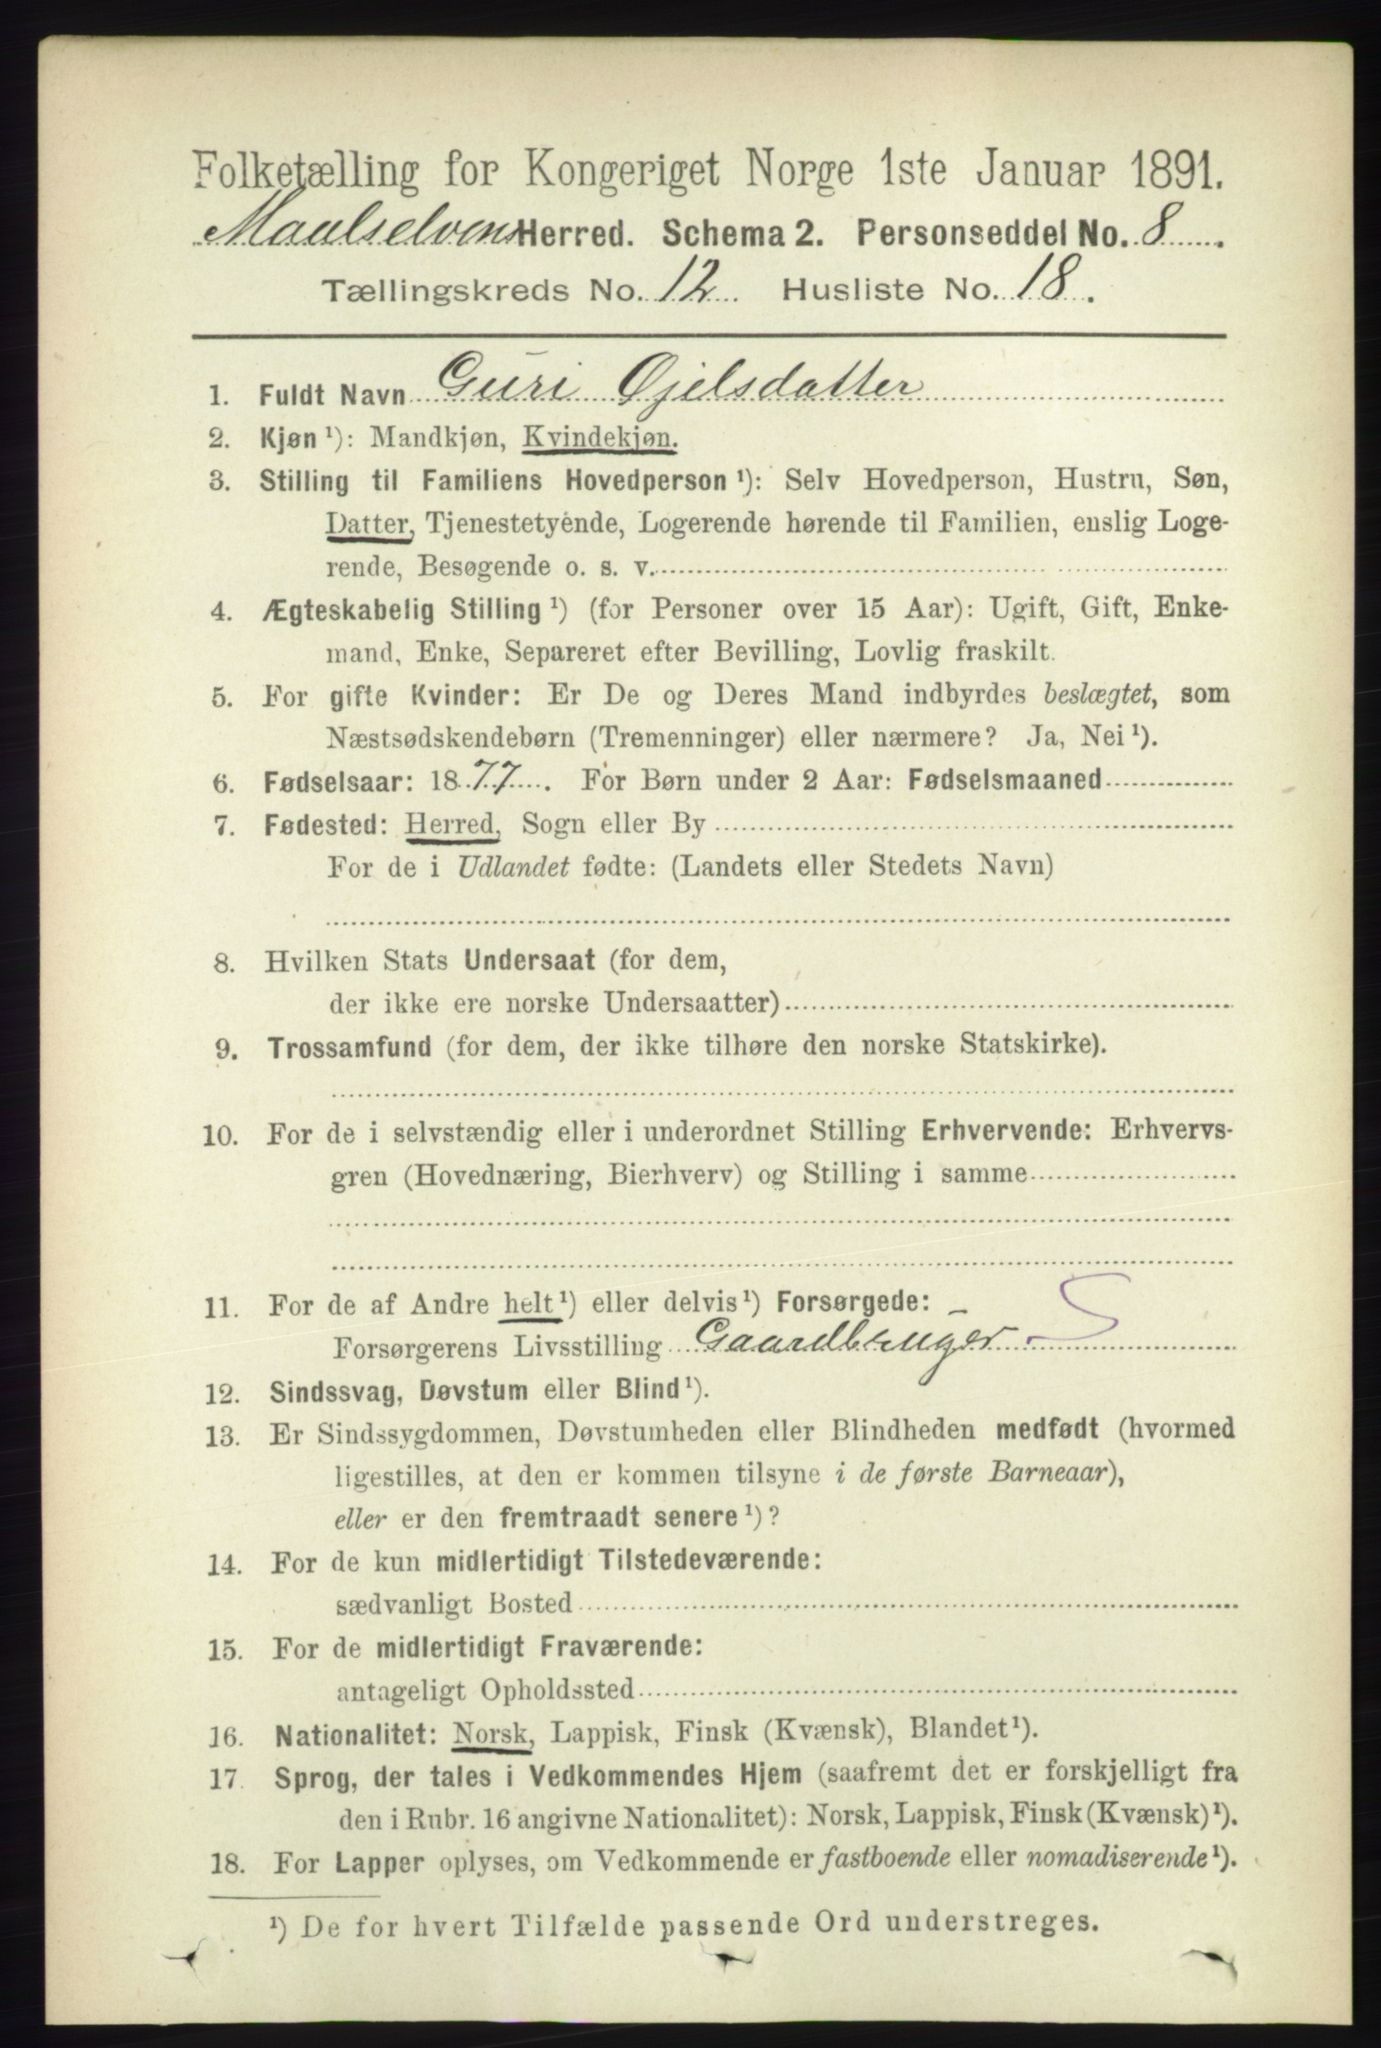 Folketælling for Kongeriget Norge 1ste Januar 1891.
Maalselvens Herred. Schema 2. Personseddel No. 8
Tællingskreds No. 12 Husliste No. 18.
1. Fuldt Navn Guri Ojelsdatter
2. Kjøn ¹): Mandkjøn, Kvindekjøn.
3. Stilling til Familiens Hovedperson ¹): Selv Hovedperson, Hustru, Søn,
Datter, Tjenestetyende, Logerende hørende til Familien, enslig Loge-
rende, Besøgende o. s. v.
4. Ægteskabelig Stilling ¹) (for Personer over 15 Aar): Ugift, Gift, Enke-
mand, Enke, Separeret efter Bevilling, Lovlig fraskilt.
5. For gifte Kvinder: Er De og Deres Mand indbyrdes beslægtet, som
Næstsødskendebørn (Tremenninger) eller nærmere? Ja, Nei ¹).
6. Fødselsaar: 1877. For Børn under 2 Aar: Fødselsmaaned
7. Fødested: Herred, Sogn eller By
For de i Udlandet fødte: (Landets eller Stedets Navn)
8. Hvilken Stats Undersaat (for dem,
der ikke ere norske Undersaatter)
9. Trossamfund (for dem, der ikke tilhøre den norske Statskirke).
10. For de i selvstændig eller i underordnet Stilling Erhvervende: Erhvervs-
gren (Hovednæring, Bierhverv) og Stilling i samme
11. For de af Andre helt ¹) eller delvis ¹) Forsørgede:
Forsørgerens Livsstilling Gaardbruger S
12. Sindssvag, Døvstum eller Blind ¹).
13. Er Sindssygdommen, Døvstumheden eller Blindheden medfødt (hvormed
ligestilles, at den er kommen tilsyne i de første Barneaar),
eller er den fremtraadt senere ¹)?
14. For de kun midlertidigt Tilstedeværende:
sædvanligt Bosted
15. For de midlertidigt Fraværende:
antageligt Opholdssted
16. Nationalitet: Norsk, Lappisk, Finsk (Kvænsk), Blandet ¹).
17. Sprog, der tales i Vedkommendes Hjem (saafremt det er forskjelligt fra
den i Rubr. 16 angivne Nationalitet): Norsk, Lappisk, Finsk (Kvænsk) ¹).
18. For Lapper oplyses, om Vedkommende er fastboende eller nomadiserende ¹).
¹) De for hvert Tilfælde passende Ord understreges.